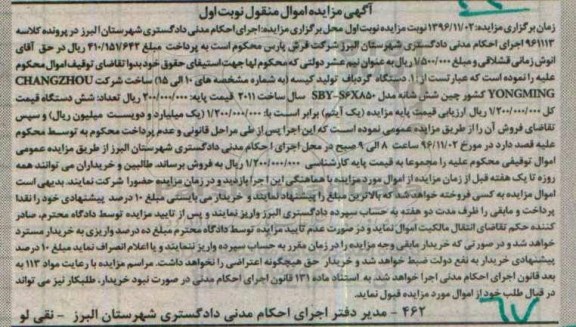 آگهی مزایده اموال منقول نوبت اول
زمان برگزاری مزایده: ۱۳۹۶/۱۱/۰۲ نوبت مزایده نوبت اول محل برگزاری مزایده: اجرای احکام مدنی دادگستری شهرستان البرز در پرونده کلاسه
۹۶۱۱۱۳ اجرای احکام مدنی دادگستری شهرستان البرز شرکت فرش پارس محکوم است به پرداخت مبلغ ۴۱۰/۱۵۷/۶۴۳ ریال در حق آقای
انوش قشلاقی و مبلغ ۱/۵۰۰/۰۰۰ ریال به عنوان نیم عشر دولتی که محکوم لها جهت استیفای حقوق خود بدوا تقاضای توقیف اموال محکوم
علیه را نموده است که عبارتست از: ۱. دستگاه گردباف تولید کیسه (به شماره مشخصه های ۱۰ الی ۱۵) ساخت شرکت CHANGZHOU
YONGMING کشور چین شش شانه مدل SBY-S6X850 سال ساخت ۲۰۱۱ قیمت پایه: ۲۰۰/۰۰۰/۰۰۰ ریال تعداد: شش دستگاه قیمت
کل ۱/۲۰۰/۰۰۰/۰۰۰ ریال ارزیابی قیمت پایه مزایده (یک آیتم) برابر است با: ۱/۲۰۰/۰۰۰/۰۰۰ (یک میلیارد و دویست میلیون ریال) و سپس
تقاضای فروش آن را از طریق مزایده عمومی نموده است که این اجرا پس از طی مراحل قانونی و عدم پرداخت محکوم به توسط محکوم
علیه قصد دارد در مورخ ۹۶/۱۱/۰۲ ساعت ۸ الی ۹ صبح در محل اجرای احکام مدنی دادگستری شهرستان البرز از طریق مزایده عمومی
اموال توقیفی محکوم علیه را مجموعا به قیمت پایه کارشناسی ۱/۲۰۰/۰۰۰/۰۰۰ ریال به فروش برساند. طالبین و خریداران می توانند همه
روزه تا یک هفته قبل از زمان مزایده از اموال مورد مزایده با هماهنگی این اجرا بازدید و در زمان مزایده حضورا شرکت نمایند. بدیهی است
اموال مزایده به کسی فروخته خواهد شد که بالاترین مبلغ را پیشنهاد نمایند و خریدار می بایستی مبلغ ۱۰ درصد پیشنهادی خود را نقدا
پرداخت و مابقی را ظرف مدت دو هفته به حساب سپرده دادگستری البرز واریز نمایند و پس از تایید مزایده توسط دادگاه محترم، صادر
کننده حکم تقاضای انتقال مالکیت اموال نماید و در صورت عدم تایید مزایده توسط دادگاه محترم مبلغ ده درصد واریزی به خریدار مسترد
خواهد شد و در صورتی که خریدار مابقی وجه مزایده را در زمان مقرر به حساب سپرده واریز ننمایند و یا اعلام انصراف نماید مبلغ ۱۰ درصد
پیشنهادی خریدار به نفع دولت ضبط خواهد شد و خریدار حق هیچگونه اعتراضی را نخواهد داشت. مراسم مزایده با رعایت مواد ۱۱۳ به
بعد قانون اجرای احکام مدنی اجرا خواهد شد. به استناد ماده ۱۳۱ قانون اجرای احکام مدنی در صورت نبود خریدار، طلبکار نیز می تواند
در قبال طلب خود از اموال مورد مزایده قبول نماید.
۴۶۲ - مدیر دفتر اجرای احکام مدنی دادگستری شهرستان البرز - نقی لو